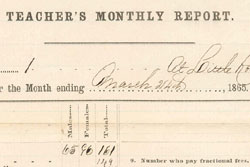 TEACHER'S MONTHLY REPORT.
1. At Little
r the Month ending March 31st, 1865
Males. Females. Total
65 96 161
8. Number who pay fractional fees,